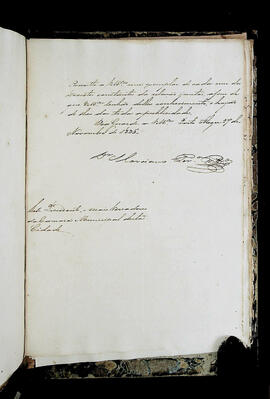 Remetto a V.Mces um exemplar de cada um dos
Decretos constantes da relação junta, afim de
que V.Mces tenhão delles conhecimento, e hajão
de dar-lhes toda a publicidade.
Deos Guarde a V.Mces Porto Alegre 27 de
Novembro de 1835.
Dr. Marciano Per.a
Snrs. Presidente, e mais Vereadores
da Camara Municipal desta
Cidade